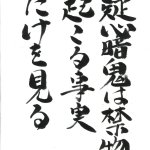 疑心暗鬼は禁物
起こる事実
だけを見る